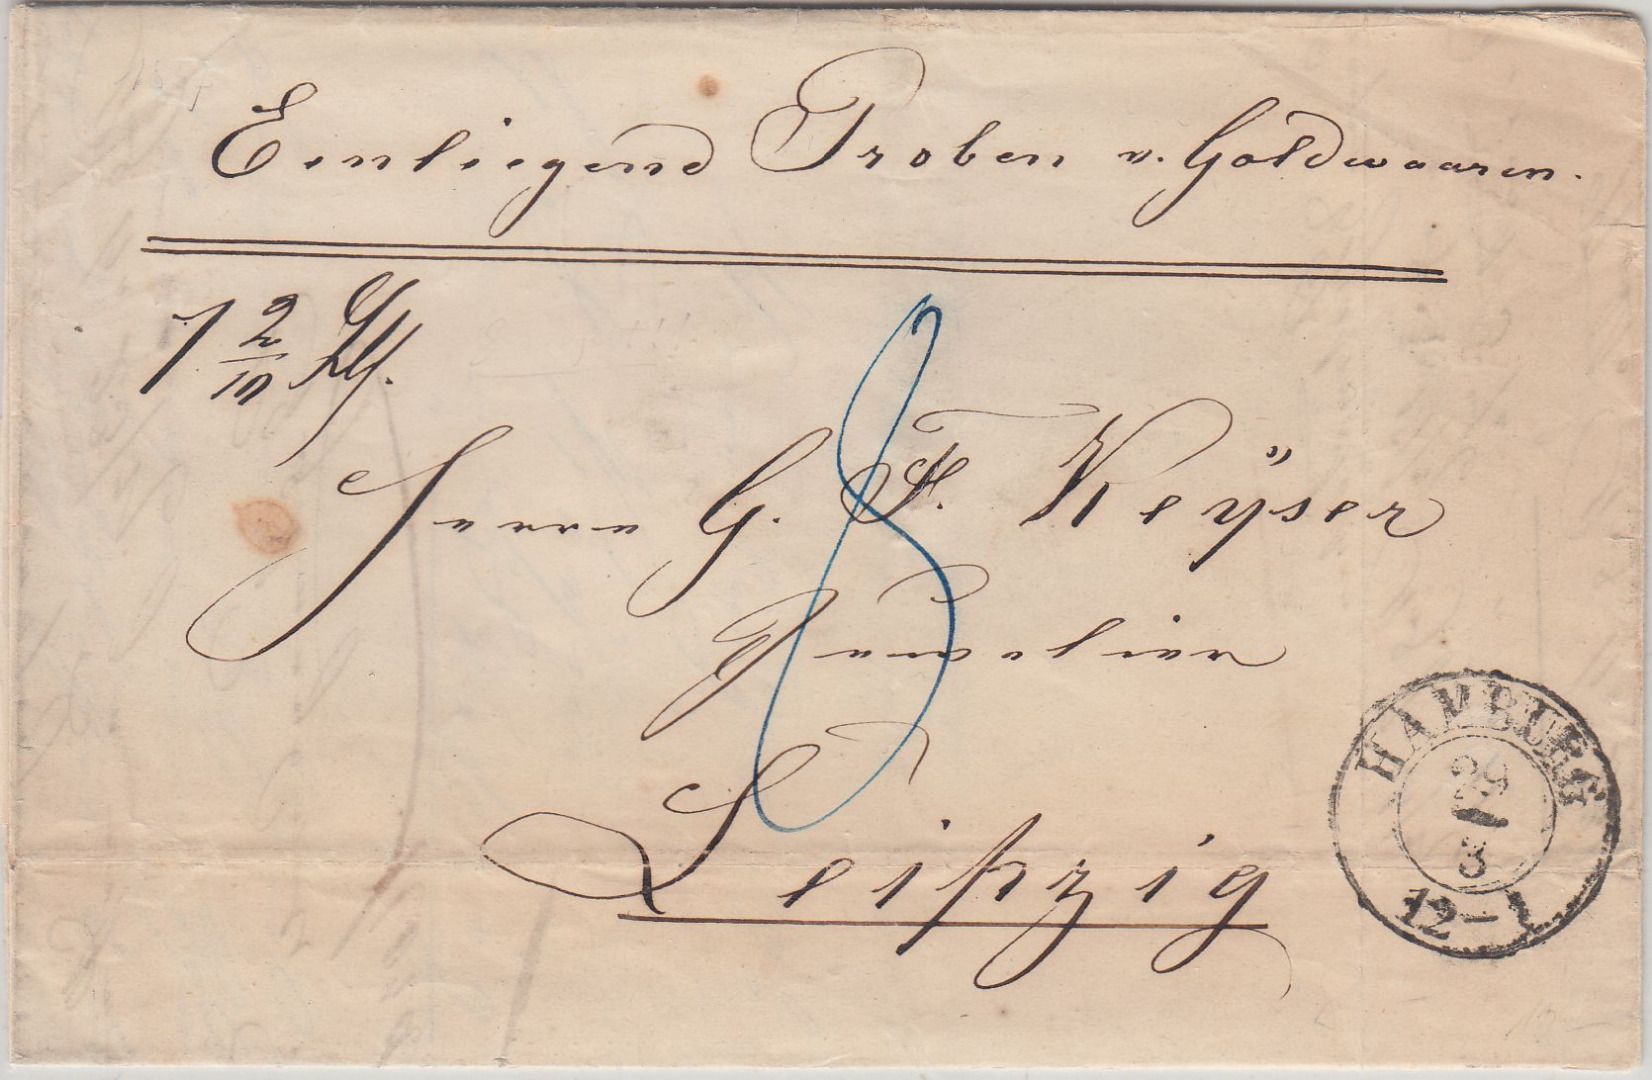 Einliegend Proben v. Goldwaaren.
1 2/10 Lth.
8
Herrn G. F. Keÿser
Juwelier
Leipzig
HAMBURG
29
8
12–1